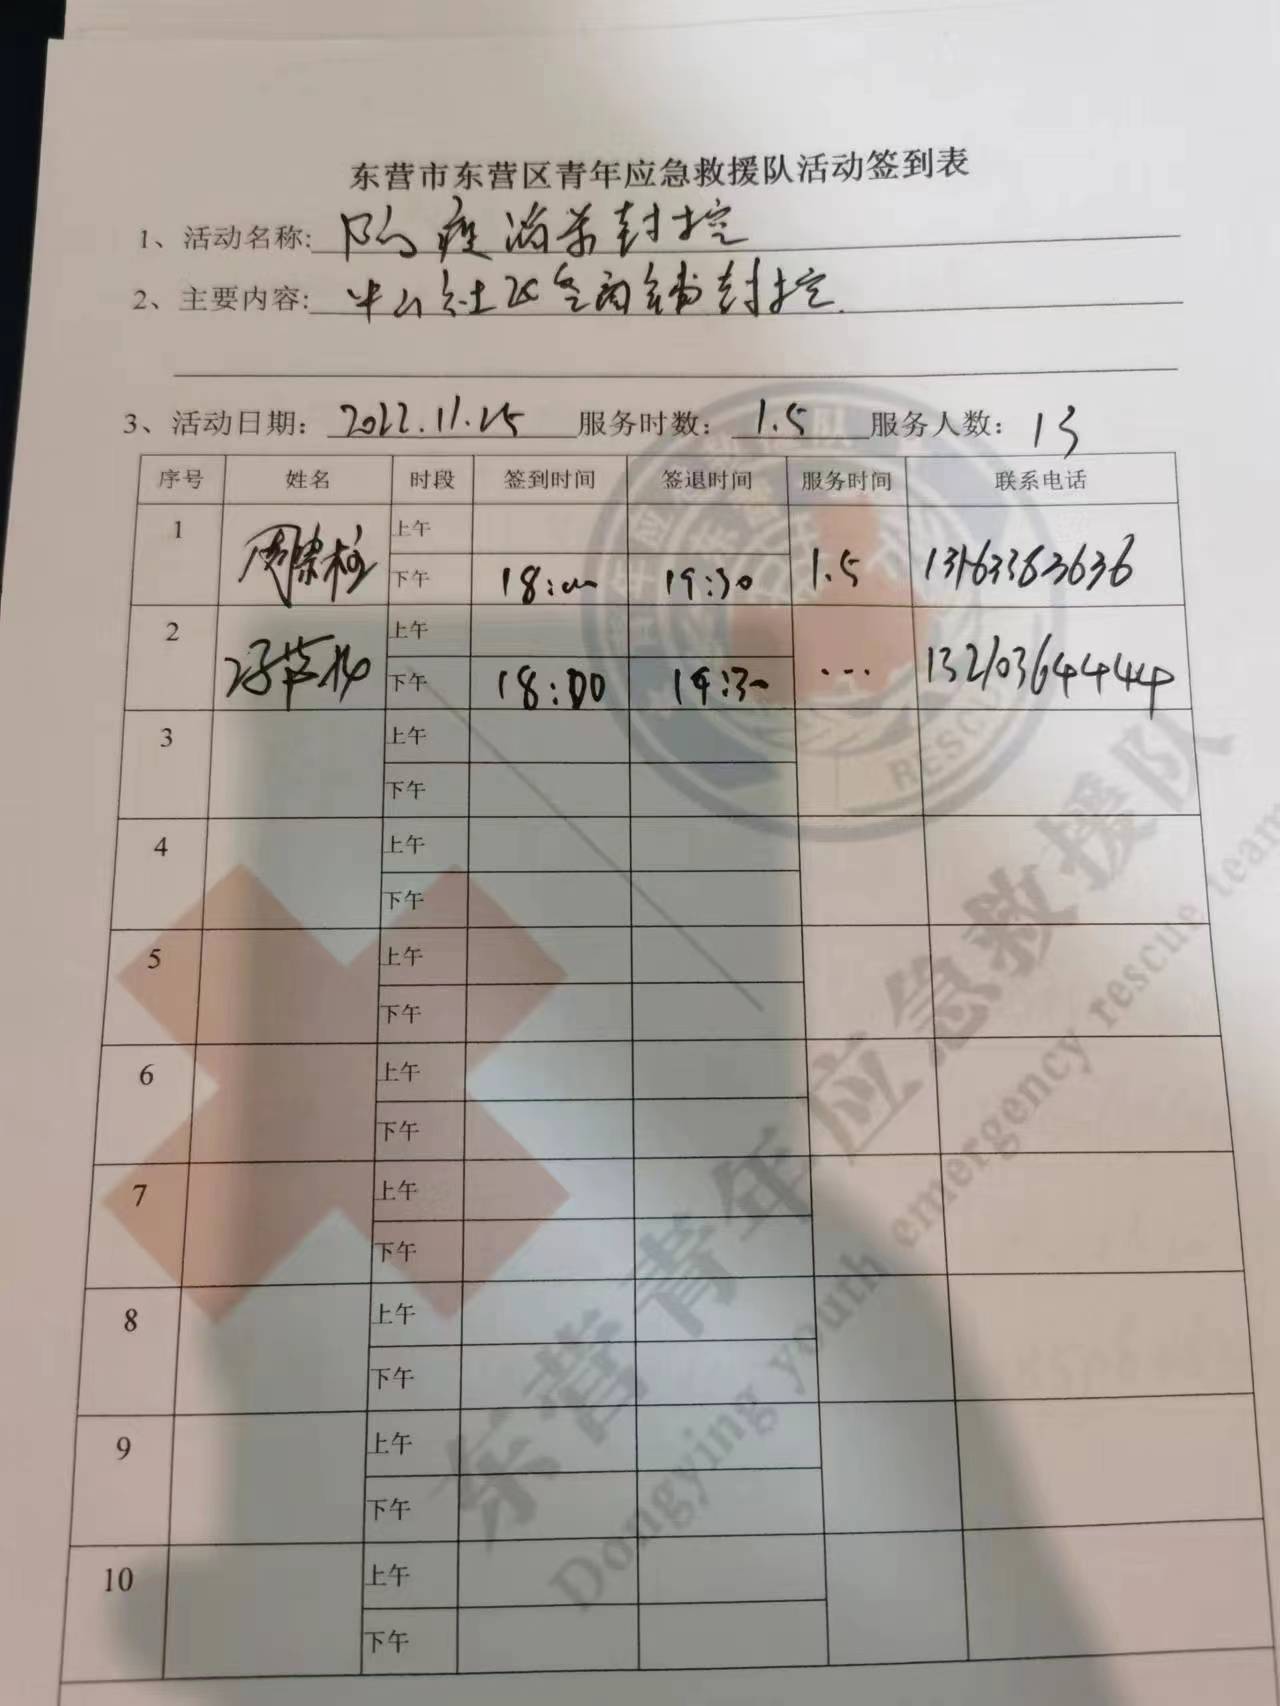 东营市东营区青年应急救援队活动签到表
1、活动名称: 防疫消杀封控
2、主要内容: 社区 商铺封控.
3、活动日期: 2022.11.25 服务时数: 1.5 服务人数: 13
序号 姓名 时段 签到时间 签退时间 服务时间 联系电话
1 上午
下午 18:00 19:30 1.5 13163363636
2 上午
下午 18:00 19:30 ... 13210364444
3 上午
下午
4 上午
下午
5 上午
下午
6 上午
下午
7 上午
下午
8 上午
下午
9 上午
下午
10 上午
下午
RESCU
东营青年应急救援队
Dongying youth emergency rescue team